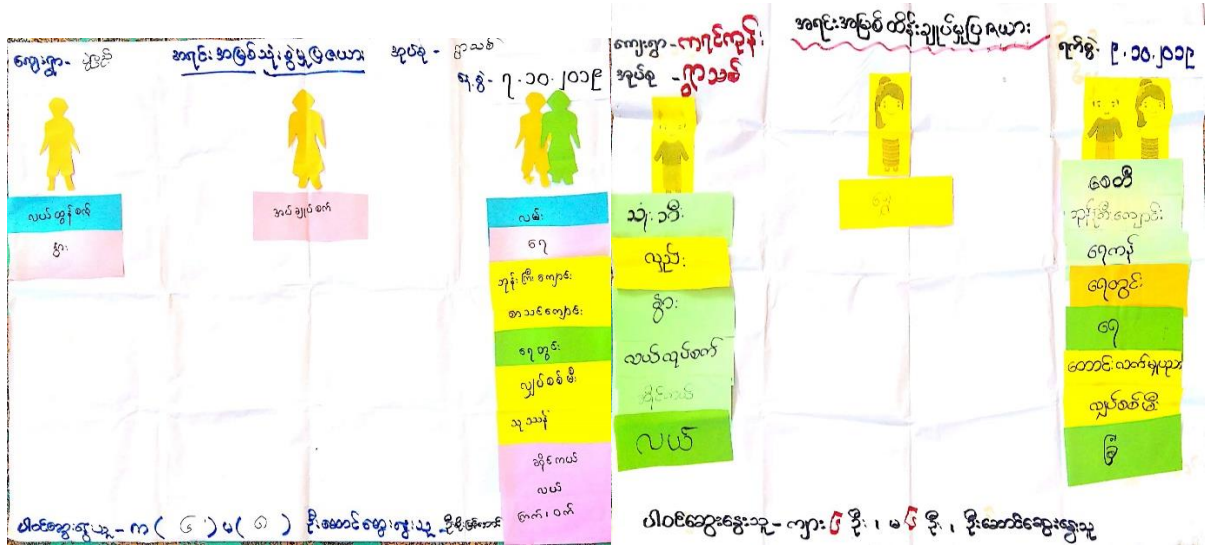 ကျေးရွာ-
အရင်းအမြစ်သုံးစွဲမှုပြဇယား
အုပ်စု - ရွာသစ်
ရ.စွဲ - ၇.၁၀.၂၀၁၉
လယ်ထွန်စက်
နွား
အပ်ချုပ်စက်
လမ်း
ရေ
ဘုန်းကြီးကျောင်း
စာသင်ကျောင်း
ရေတွင်း
လျှပ်စစ်မီး
သုဿန်
ဆိုင်ကယ်
လယ်
ကြက်၊ဝက်
ပါဝင်ဆွေးနွေးသူ - က ( ၆ ) မ ( ၈ ) ဦးဆောင်ဆွေးနွေးသူ
ကျေးရွာ - ကရင်ကုန်း
အရင်းအမြစ်ထိန်းချုပ်မှုပြဇယား
ရက်စွဲ - ၉.၁၀.၂၀၁၉
အုပ်စု - ရွာသစ်
သုံးဘီး
လှည်း
နွား
လယ်လုပ်စက်
ဆိုင်ကယ်
လယ်
ရွှေ
စေတီ
ဘုန်းကြီးကျောင်း
ရေကန်
ရေတွင်း
ရေ
တောင်းလက်မှုပညာ
လျှပ်စစ်မီး
ခြံ
ပါဝင်ဆွေးနွေးသူ - ကျား ၆ ဦး ၊ မ ၆ ဦး ၊ ဦးဆောင်ဆွေးနွေးသူ